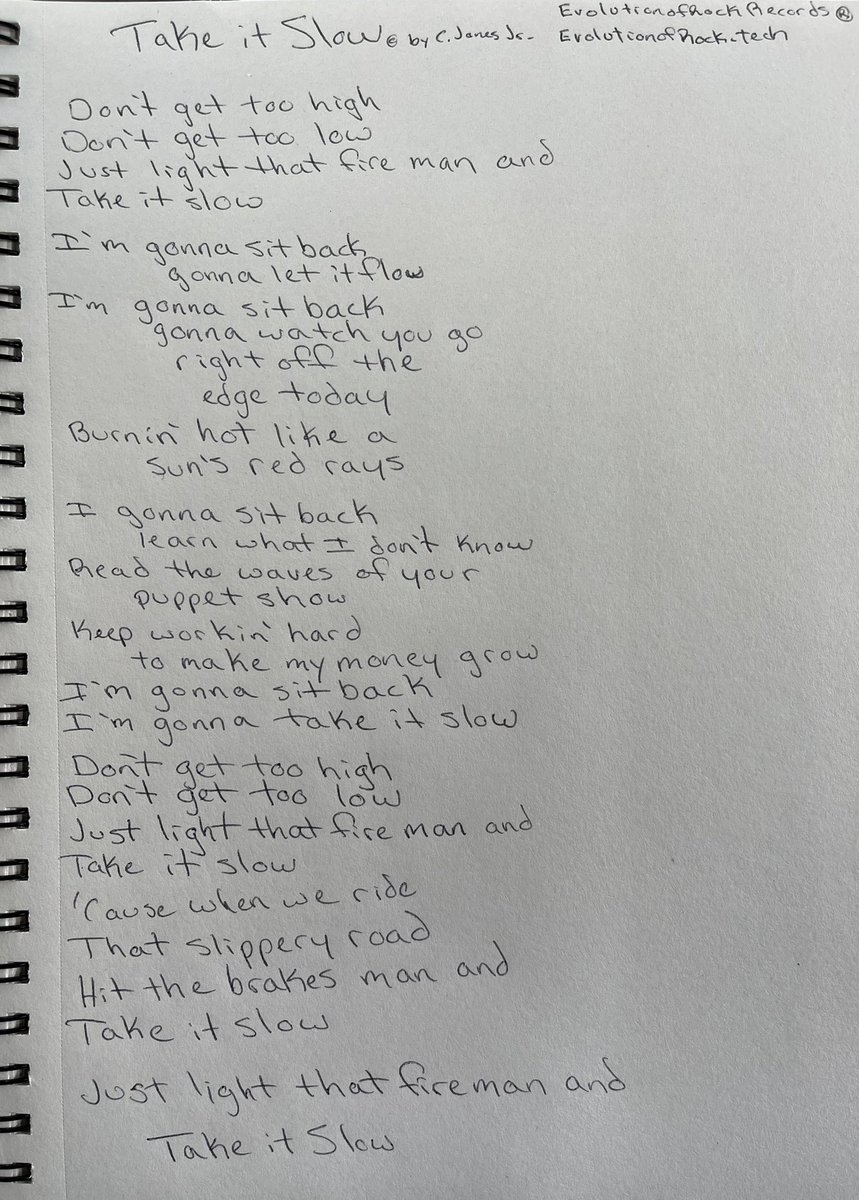 Take it Slow © by C. Jones Jr.
EvolutionofRock Records ®
EvolutionofRock.tech
Don't get too high
Don't get too low
Just light that fire man and
Take it slow
I'm gonna sit back
gonna let it flow
I'm gonna sit back
gonna watch you go
right off the
edge today
Burnin' hot like a
sun's red rays
I gonna sit back
learn what I don't know
Read the waves of your
puppet show
Keep workin' hard
to make my money grow
I'm gonna sit back
I'm gonna take it slow
Don't get too high
Don't get too low
Just light that fire man and
Take it slow
'Cause when we ride
That slippery road
Hit the brakes man and
Take it slow
Just light that fire man and
Take it Slow